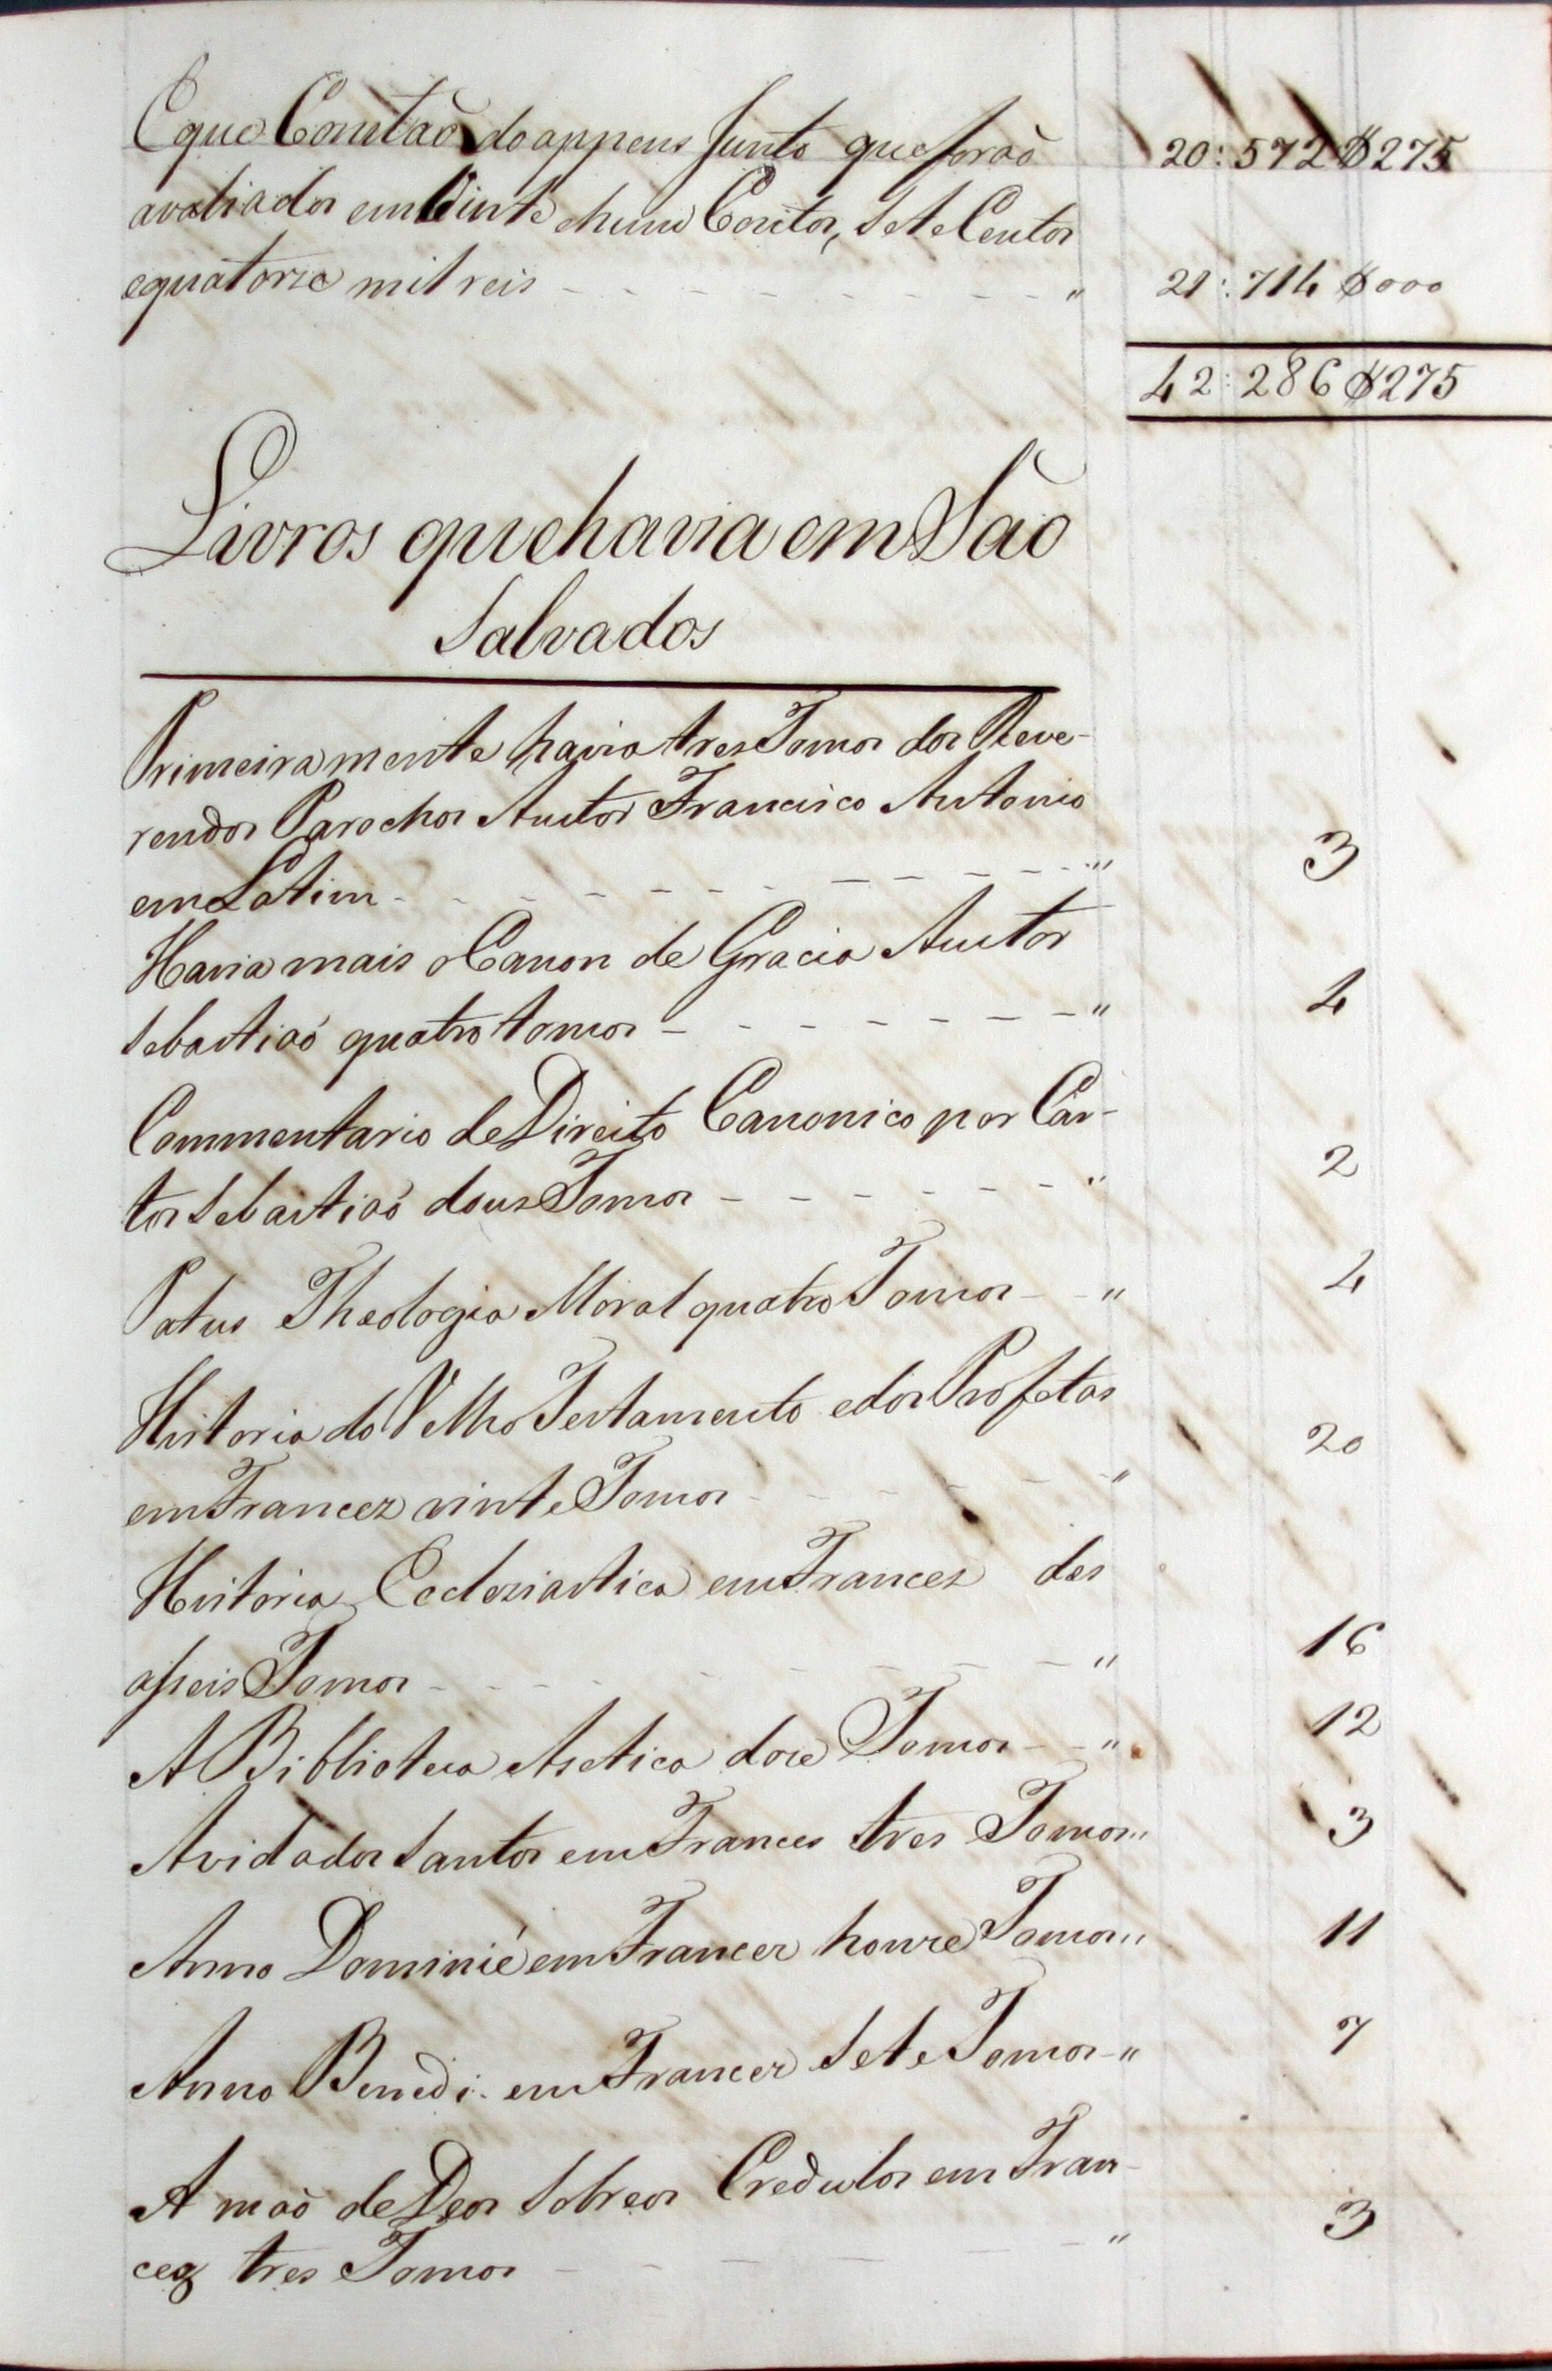 E que Constaõ do appens Junto que foraõ 20:572$275
avaliados em Vinte ehum Contos, Sete Centos
equatorze mil reis - - - - - - - - - " 21:714$000
42:286$275
Livros que havia em São
Salvados
Primeiramente havia tres Tomos dos Reve-
rendos Parochos Auctor Francisco Antonio
em Latim - - - - - - - - - - " 3
Havia mais o Canon de Gracia Auctor
Sebastiaõ quatro tomos - - - - - - - - " 4
Commentario de Direito Canonico por Car-
tos Sebastiaõ dous Tomos - - - - - - - " 2
Patus Theologia Moral quatro Tomos - - " 4
Historia do Velho Testamento e dos Profetas
em Francez vinte Tomos - - - - - - " 20
Historia Ecclesiastica em Francez des
asseis Tomos - - - - - - - - - " 16
A Biblioteca Asetica doze Tomos - - " 12
Avida dos Santos em Frances tres Tomos " 3
Anno Dominié em Francez honze Tomos " 11
Anno Benedi. em Francez Sete Tomos - " 7
A maõ de Deos Sobreos Credulos em Fran-
cez tres Tomos - - - - - " 3